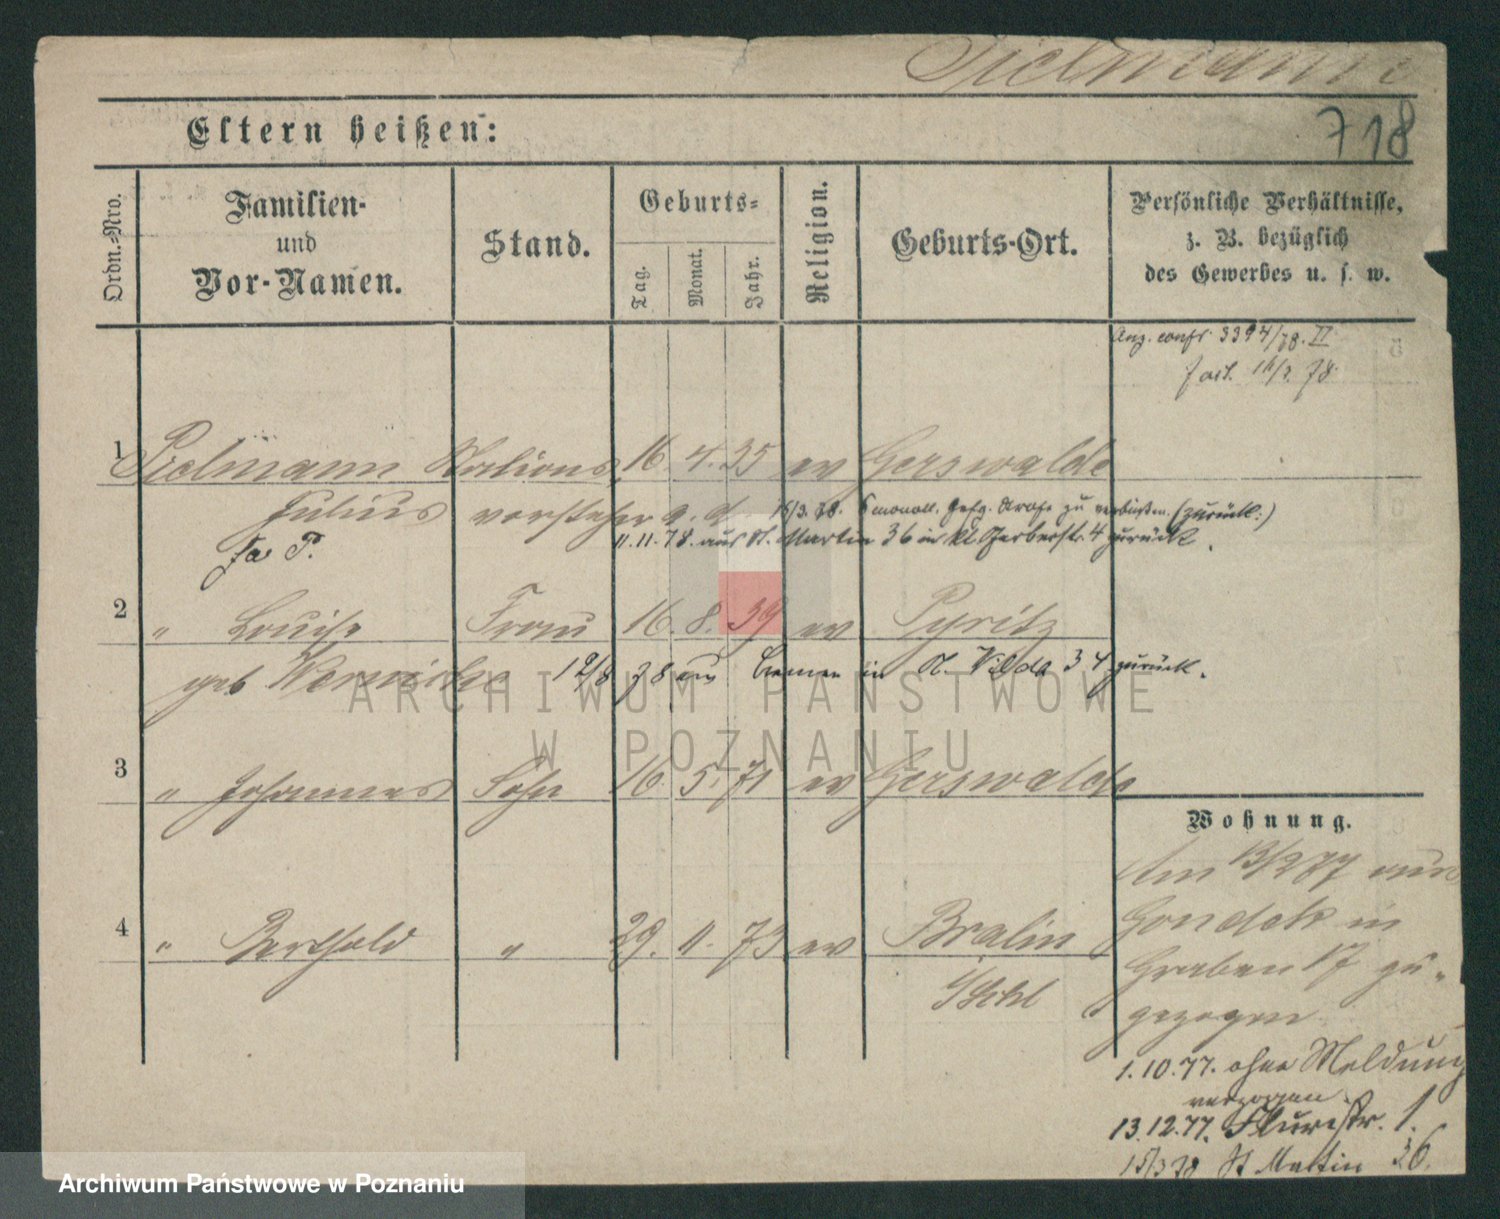 Pielmann
718
Eltern heißen:
Ordn.-Nro.
Familien-
und
Vor-Namen.
Stand.
Geburts-
Tag.
Monat.
Jahr.
Religion.
Geburts-Ort.
Persönliche Verhältnisse,
z. B. bezüglich
des Gewerbes u. s. w.
3394/78. II
78
1 Pielmann Stations 16. 4. 35 ev Gerswalde
Julius vorsteher a. d. 15/3. 78. 6 monatl. Gefg. Strafe zu verbüßen. (zurück.)
11. 11. 78. aus St. Martin 36 in kl. Gerberstr. 4 zurück.
2 " Louise Frau 16. 8. 39 ev Pyritz
geb 78 aus Bremen in St. Vilda 34 zurück.
3 " Johannes Sohn 16. 5. 71 ev Gerswalde
Wohnung.
4 " Berthold " 29. 11. 73 ev Bralin
Am 13/2 77 aus
Gondek in
Graben 17 zu-
gezogen
1. 10. 77. ohne Meldung
verzogen
13. 12. 77. Flurstr. 1.
15/3 78 St Martin 36.
ARCHIWUM PAŃSTWOWE
W POZNANIU
Archiwum Państwowe w Poznaniu